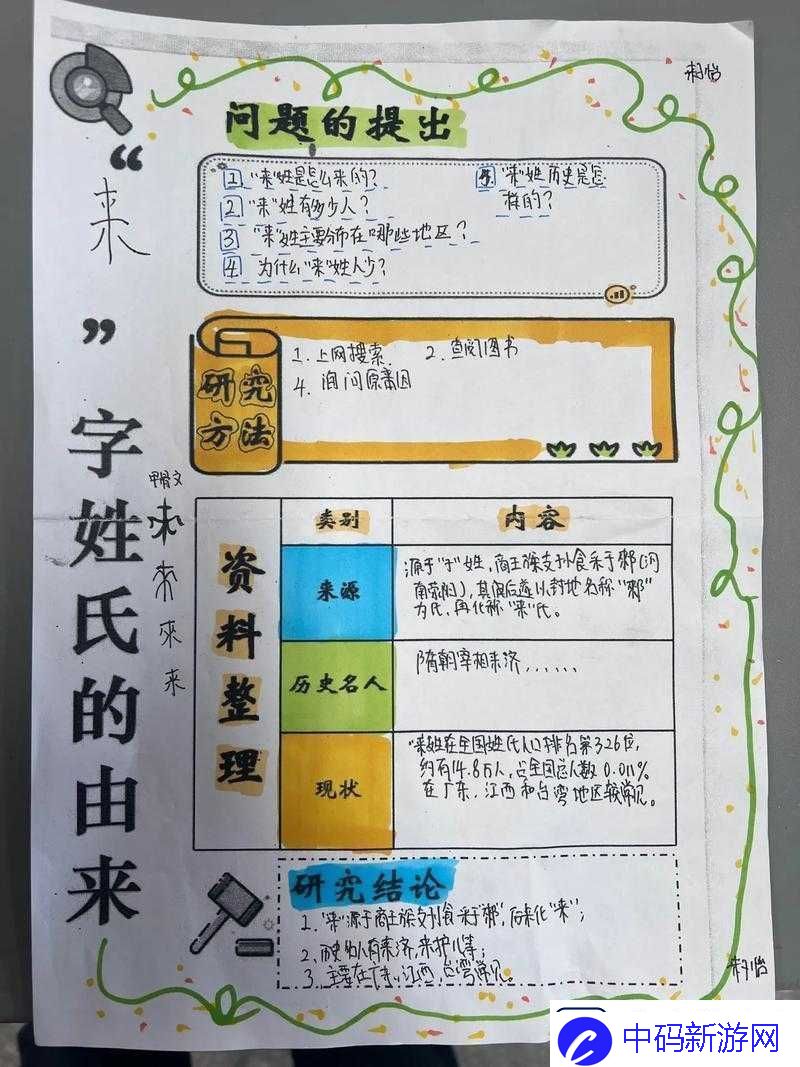 问题的提出
1 "来"姓是怎么来的?
2 "来"姓有多少人?
3 "来"姓主要分布在哪些地区?
4 为什么"来"姓人少?
5 "来"姓历史是怎
样的?
"来"字姓氏的由来
甲骨文
來
来
研究
方法
1. 上网搜索
2. 查阅图书
4. 询问原因
资料整理
类别
内容
来源
源于"子"姓,商王族支孙食采于郲(河
南荥阳),其后遂以封地名称"郲"
为氏,再化称"来"氏。
历史名人
隋朝宰相来济......
现状
"来姓在全国姓氏人口排名第326位,
约有14.8万人,占全国总人数0.011%
在广东、江西和台湾地区较常见。
研究结论
1. "来"源于商王族支孙食采于"郲",后来化"来";
2. 历史名人有来济,来护儿等;
3. 主要在广东、江西、台湾常见。
中码新游网